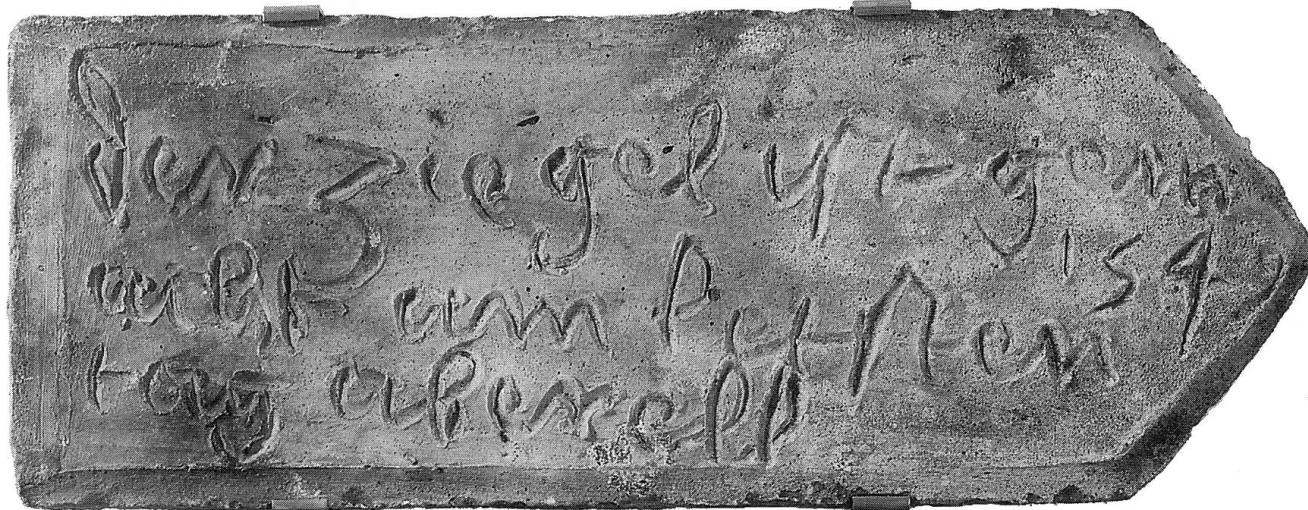 der ziegel ist gem
acht am letsten 154
tag aberell